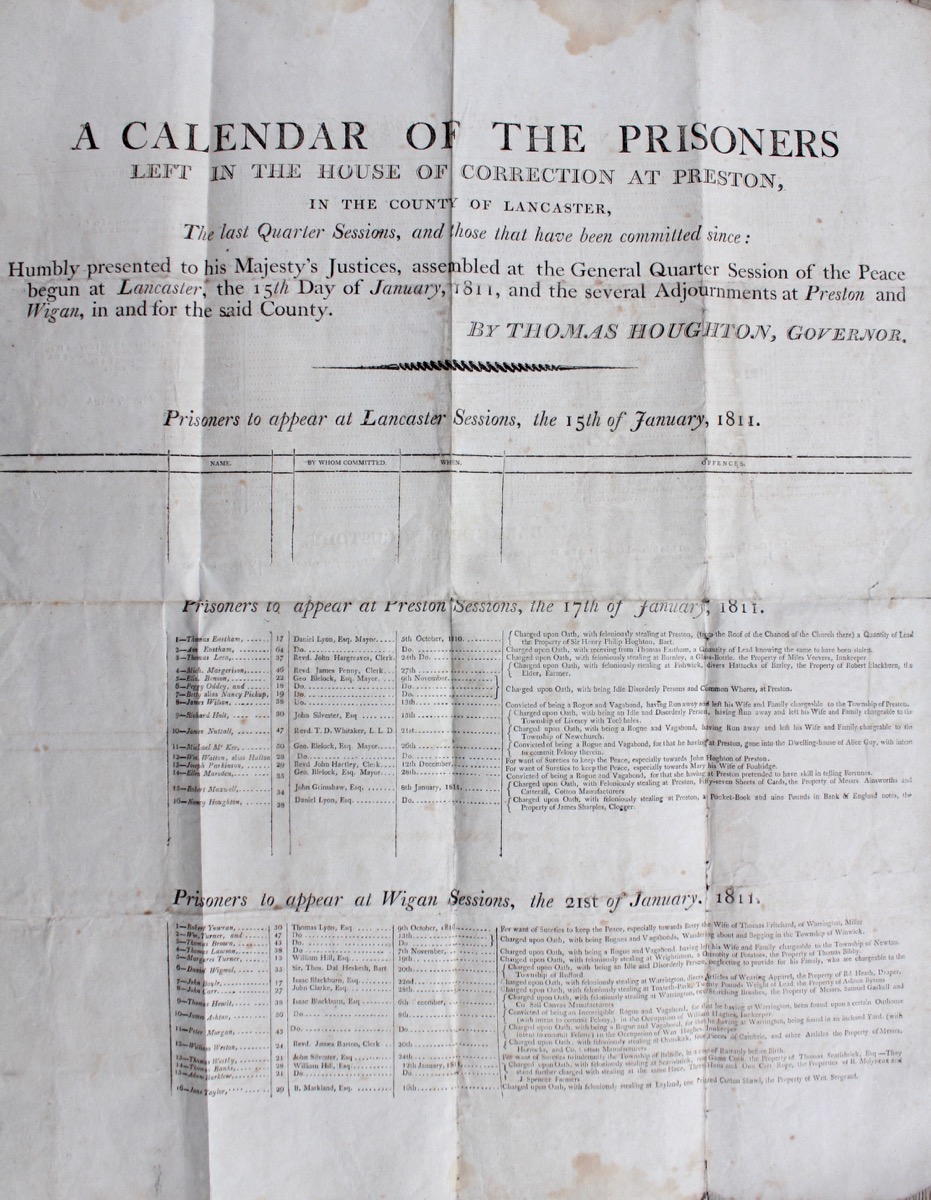 A CALENDAR OF THE PRISONERS
LEFT IN THE HOUSE OF CORRECTION AT PRESTON,
IN THE COUNTY OF LANCASTER,
The last Quarter Sessions, and those that have been committed since:
Humbly presented to his Majesty's Justices, assembled at the General Quarter Session of the Peace
begun at Lancaster, the 15th Day of January, 1811, and the several Adjournments at Preston and
Wigan, in and for the said County.
BY THOMAS HOUGHTON, GOVERNOR.
Prisoners to appear at Lancaster Sessions, the 15th of January, 1811.
NAME. BY WHOM COMMITTED. WHEN. OFFENCES.
Prisoners to appear at Preston Sessions, the 17th of January, 1811.
1—Thomas Eastham, 17 Daniel Lyon, Esq. Mayor 5th October, 1810. Charged upon Oath, with feloniously stealing at Preston, (from the Roof of the Chancel of the Church there) a Quantity of Lead
the Property of Sir Henry Philip Hoghton, Bart.
2—Ann Eastham, 64 Do. Do. Charged upon Oath, with receiving from Thomas Eastham, a Quantity of Lead knowing the same to have been stolen.
3—Thomas Leen, 37 Revd. John Hargreaves, Clerk. 24th Do. Charged upon Oath, with feloniously stealing at Burnley, a Glass-Bottle, the Property of Miles Veevers, Innkeeper
4—Mich. Margerison, 46 Revd. James Penny, Clerk 27th Charged upon Oath, with feloniously stealing at Fishwick, divers Hattocks of Barley, the Property of Robert Blackburn, the
Elder, Farmer.
5—Eliz. Benson, 22 Geo Blelock, Esq. Mayor 9th November.
6—Peggy Oddey, and 18 Do. Do. Charged upon Oath, with being Idle Disorderly Persons and Common Whores, at Preston.
7—Betty alias Nancy Pickup, 19 Do. Do.
8—James Wilson, 38 Do. 13th Convicted of being a Rogue and Vagabond, having Run away and left his Wife and Family chargeable to the Township of Preston.
9—Richard Holt, 30 John Silvester, Esq 15th Charged upon Oath, with being an Idle and Disorderly Person, having Run away and left his Wife and Family chargeable to the
Township of Livesey with Tockholes.
10—James Nuttall, 47 Revd. T. D. Whitaker, L. L. D. 21st Charged upon Oath, with being a Rogue and Vagabond, having Run away and left his Wife and Family chargeable to the
Township of Newchurch.
11—Michael Mc Kee, 50 Geo. Blelock, Esq. Mayor 26th Convicted of being a Rogue and Vagabond, for that he having at Preston, gone into the Dwelling-house of Alice Guy, with intent
to commit Felony therein.
12—Wm. Walton, alias Hatton 28 Do. Do. For want of Sureties to keep the Peace, especially towards John Hoghton of Preston.
13—Joseph Parkinson, 29 Revd John Hartley, Clerk 12th December, For want of Sureties to keep the Peace, especially towards Mary his Wife of Foulridge.
14—Ellen Marsden, 33 Geo. Blelock, Esq. Mayor 28th Convicted of being a Rogue and Vagabond, for that she having at Preston pretended to have skill in telling Fortunes.
15—Robert Maxwell, 34 John Grimshaw, Esq. 8th January, 1811. Charged upon Oath, with Feloniously stealing at Preston, Fifty-seven Sheets of Cards, the Property of Messrs Ainsworths and
Catterall, Cotton Manufacturers
16—Nancy Houghton, 38 Daniel Lyon, Esq. Do. Charged upon Oath, with feloniously stealing at Preston, a Pocket-Book and nine Pounds in Bank of England notes, the
Property of James Sharples, Clogger.
Prisoners to appear at Wigan Sessions, the 21st of January. 1811.
1—Robert Yowran, 30 Thomas Lyon, Esq. 9th October, 1810 For want of Sureties to keep the Peace, especially towards Betty the Wife of Thomas Pritchard, of Warrington, Miller
2—Wm. Turner, and 47 Do. 13th Charged upon Oath, with being Rogues and Vagabonds, Wandering about and Begging in the Township of Winwick.
3—Thomas Brown, 43 Do. Do.
4—Thomas Lawson, 38 Do 7th November, Charged upon Oath, with being a Rogue and Vagabond, having left his Wife and Family chargeable to the Township of Newton
5—Margaret Turner, 13 William Hill, Esq. 19th Charged upon Oath, with feloniously stealing at Wrightington, a Quantity of Potatoes, the Property of Thomas Bibby
6—Daniel Wignal, 33 Sir. Thos. Dal Hesketh, Bart 20th Charged upon Oath, with being an Idle and Disorderly Person, neglecting to provide for his Family, who are chargeable to the
Township of Rufford
7—John Boyle, 17 Isaac Blackburn, Esq 22nd Charged upon Oath, with feloniously stealing at Warrington, divers Articles of Wearing Apparel, the Property of Rd Heath, Draper,
8—John Carr, 27 John Clarke, Esq. 28th Charged upon Oath, with feloniously stealing at Toxteth-Park, Twenty Pounds Weight of Lead, the Property of
9—Thomas Hewit, 38 Isaac Blackburn, Esq 6th December, Charged upon Oath, with feloniously stealing at Warrington, the Property of Messrs. Samuel Gaskell and
Co Sail Canvas Manufacturers
10—James Ashton, 36 Do. 8th Convicted of being an Incorrigible Rogue and Vagabond, for that he having at Warrington, been found upon a certain Outhouse
(with intent to commit Felony,) in the Occupation of William Hughes, Innkeeper
11—Peter Morgan, 43 Do. Do. Charged upon Oath, with being a Rogue and Vagabond, for that he having at Warrington, being found in an inclosed Yard. (with
intent to commit Felony) in the Occupation of Wm Hughes, Innkeeper
12—William Weston, 24 Revd. James Barton, Clerk 20th Charged upon Oath, with feloniously stealing at Ormskirk, Pieces of Cambric, and other Articles the Property of Messrs.
Horrocks, and Co. Cotton Manufacturers
13—Thomas Westby, 21 John Silvester, Esq 24th For want of Sureties to indemnify the Township of of Bastardy before Birth.
14—Thomas Banks, 28 William Hill, Esq. 12th January, 1811, Charged upon Oath, with feloniously stealing Game Cock, the Property of Thomas Southwick, Esq.—They
15—Adam Barklow, 21 Do. Do. stand further charged with stealing at the same Place, Three Hens and One Cart Rope, the Properties of R. Molyneux and
J Spencer Farmers
16—Jane Taylor, 29 B. Markland, Esq. 15th Charged upon Oath, with feloniously stealing at Leyland, one Printed Cotton Shawl, the Property of Wm. Sergeant.